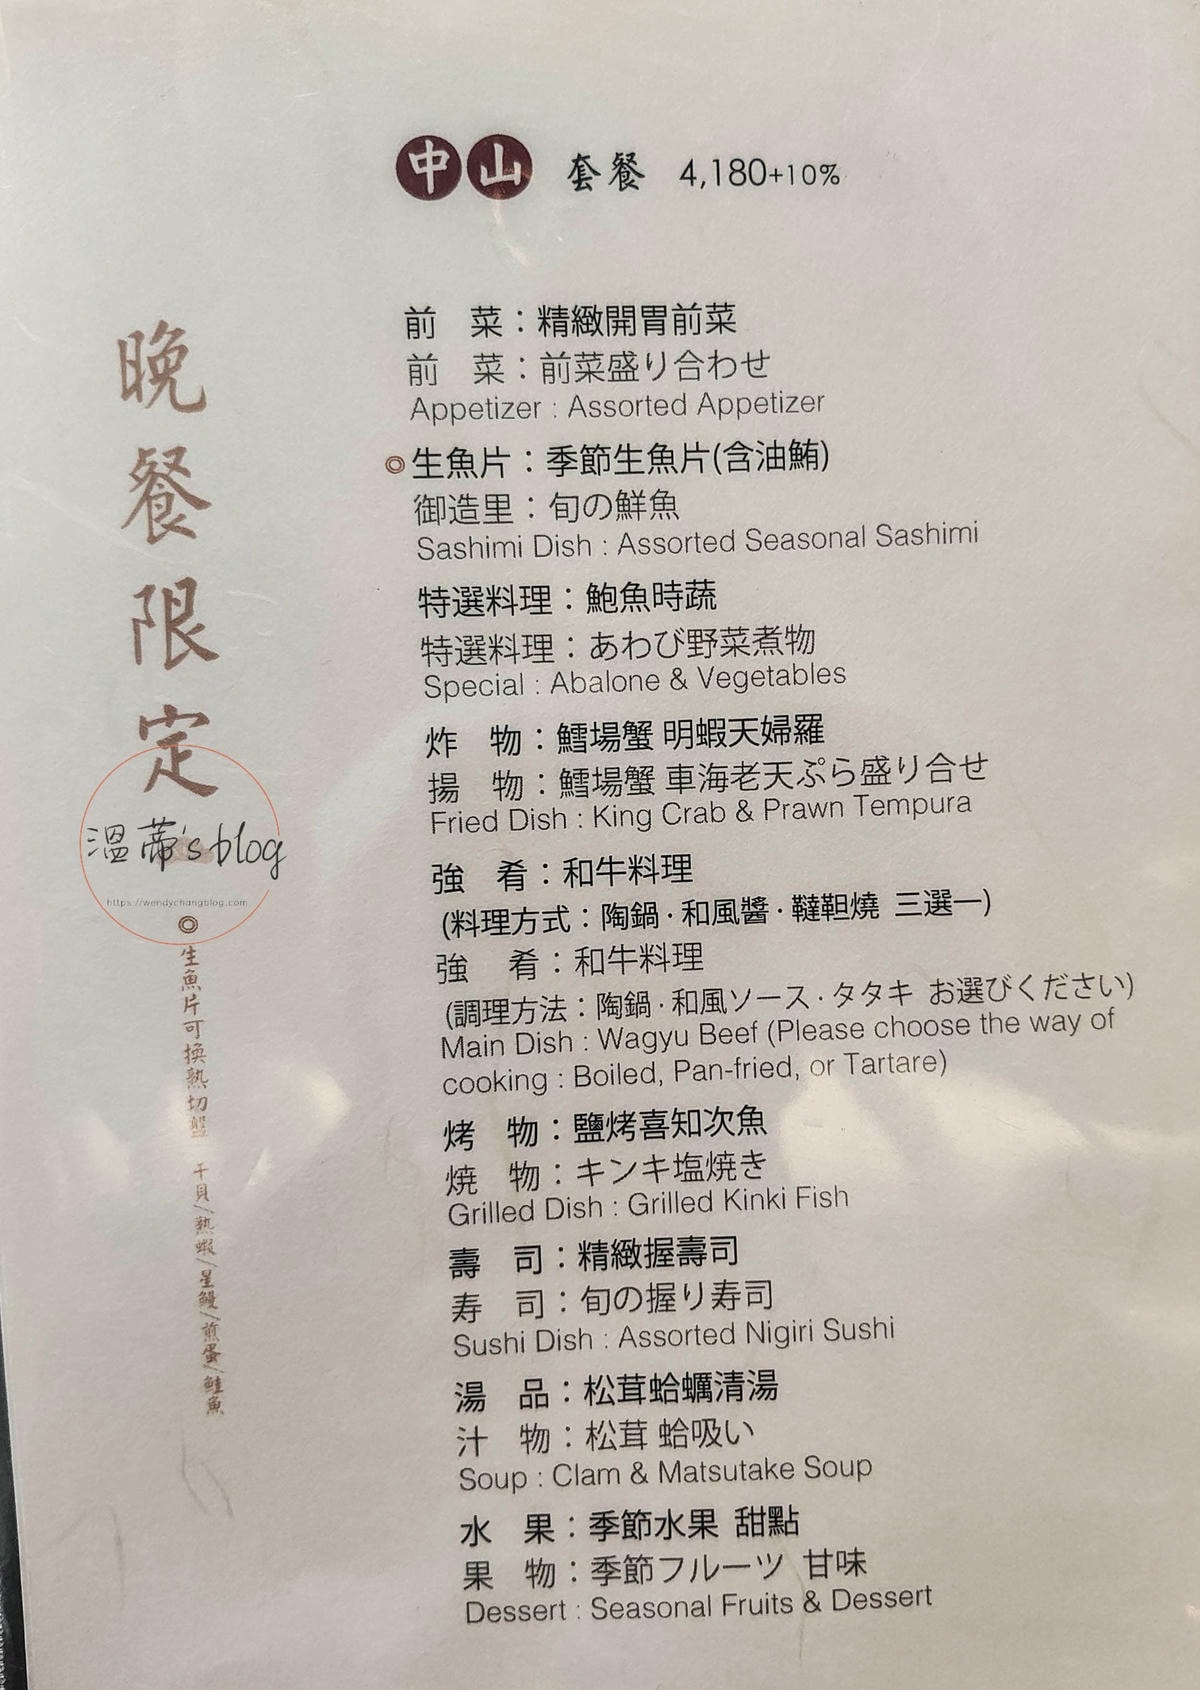 中山 套餐 4,180+10%
晚餐限定
前 菜：精緻開胃前菜
前 菜：前菜盛り合わせ
Appetizer : Assorted Appetizer
◎生魚片：季節生魚片(含油鮪)
御造里：旬の鮮魚
Sashimi Dish : Assorted Seasonal Sashimi
特選料理：鮑魚時蔬
特選料理：あわび野菜煮物
Special : Abalone & Vegetables
炸 物：鱈場蟹 明蝦天婦羅
揚 物：鱈場蟹 車海老天ぷら盛り合せ
Fried Dish : King Crab & Prawn Tempura
強 肴：和牛料理
(料理方式：陶鍋·和風醬·韃靼燒 三選一)
強 肴：和牛料理
(調理方法：陶鍋·和風ソース·タタキ お選びください)
Main Dish : Wagyu Beef (Please choose the way of
cooking : Boiled, Pan-fried, or Tartare)
烤 物：鹽烤喜知次魚
焼 物：キンキ塩焼き
Grilled Dish : Grilled Kinki Fish
壽 司：精緻握壽司
寿 司：旬の握り寿司
Sushi Dish : Assorted Nigiri Sushi
湯 品：松茸蛤蠣清湯
汁 物：松茸 蛤吸い
Soup : Clam & Matsutake Soup
水 果：季節水果 甜點
果 物：季節フルーツ 甘味
Dessert : Seasonal Fruits & Dessert
溫蒂's blog
https://wendychangblog.com
◎生魚片可換熱切盤 干貝/熟蝦/星鰻/煎蛋/鮭魚